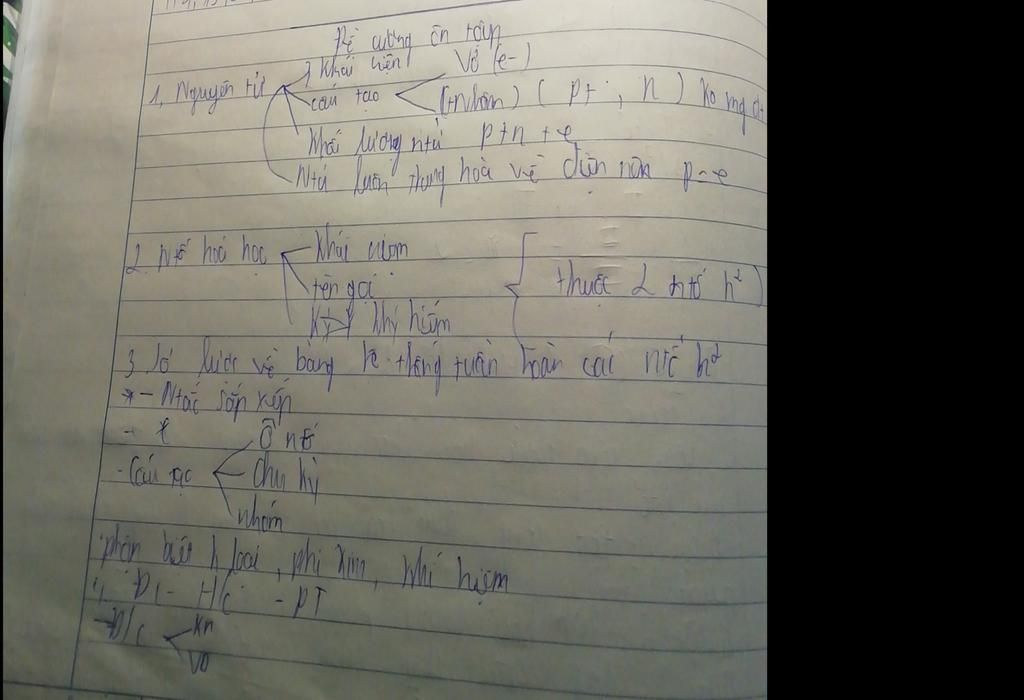 Đề cương ôn tập
1, Nguyên tử
Khái niệm
Vỏ (e-)
cấu tạo
(+nhân) ( p+ , n ) ko mg đt
Khối lượng ntử p+n+e
Ntử luôn trung hoà về điện nên p=e
2 Ntố hoá học
khái niệm
tên gọi
khý hiệm
thuộc 2 ntố h²
3 Sơ lược về bảng hệ thống tuần hoàn các ntố h²
* - Ntắc sắp xếp
-
Ô ntố
- Cấu tạo
chu kỳ
nhóm
phân biệt k loai, phi kim, khí hiệm
Đ/c - H/c - PT
- Đ/c
Kn
VD